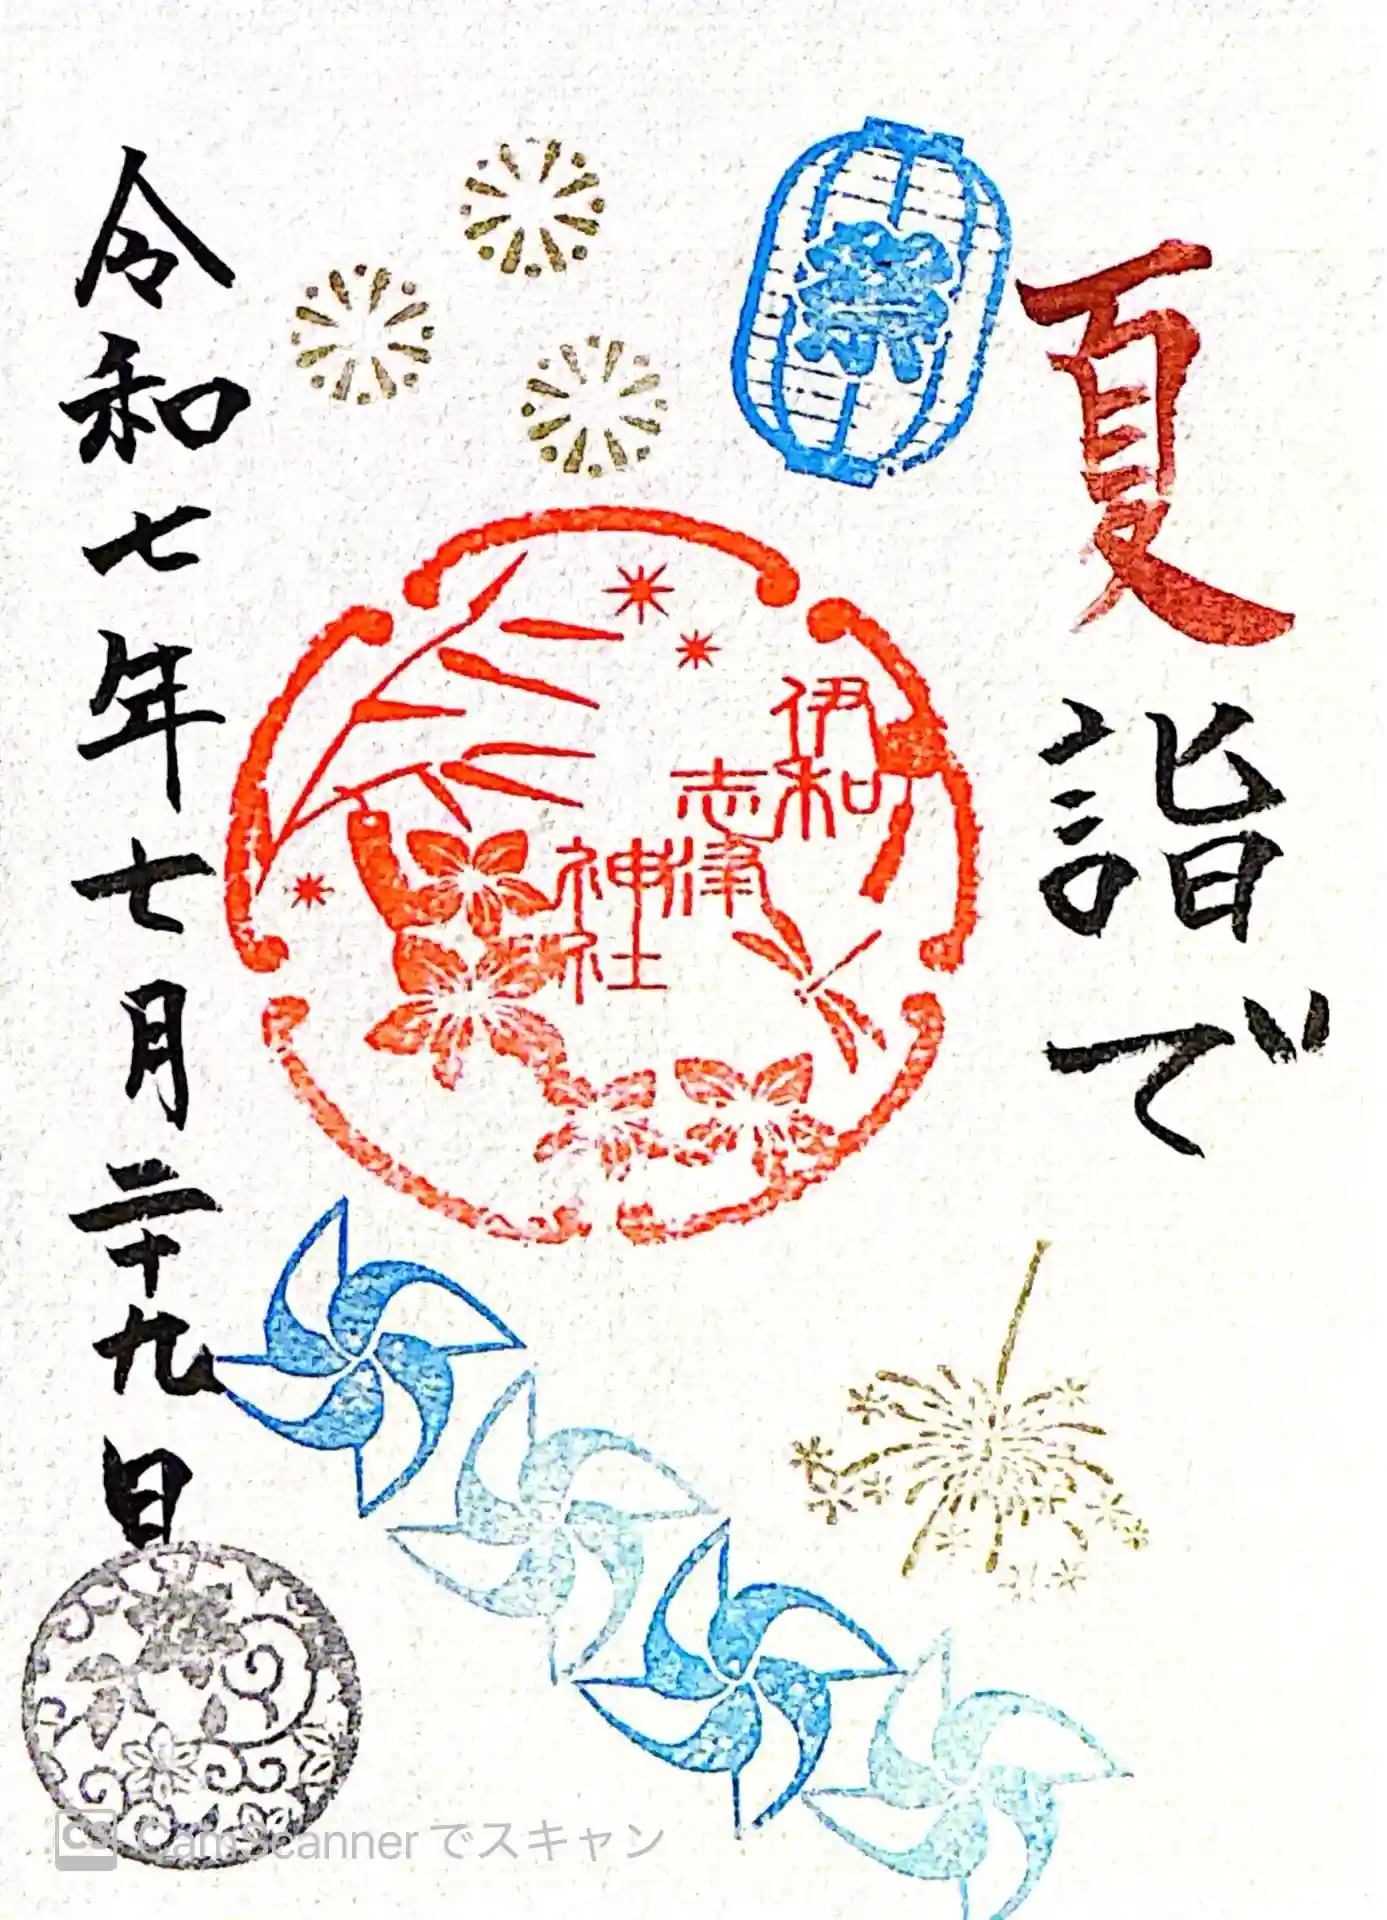 夏詣で
祭
伊和
志津
神社
令和七年七月二十九日
CS CamScannerでスキャン